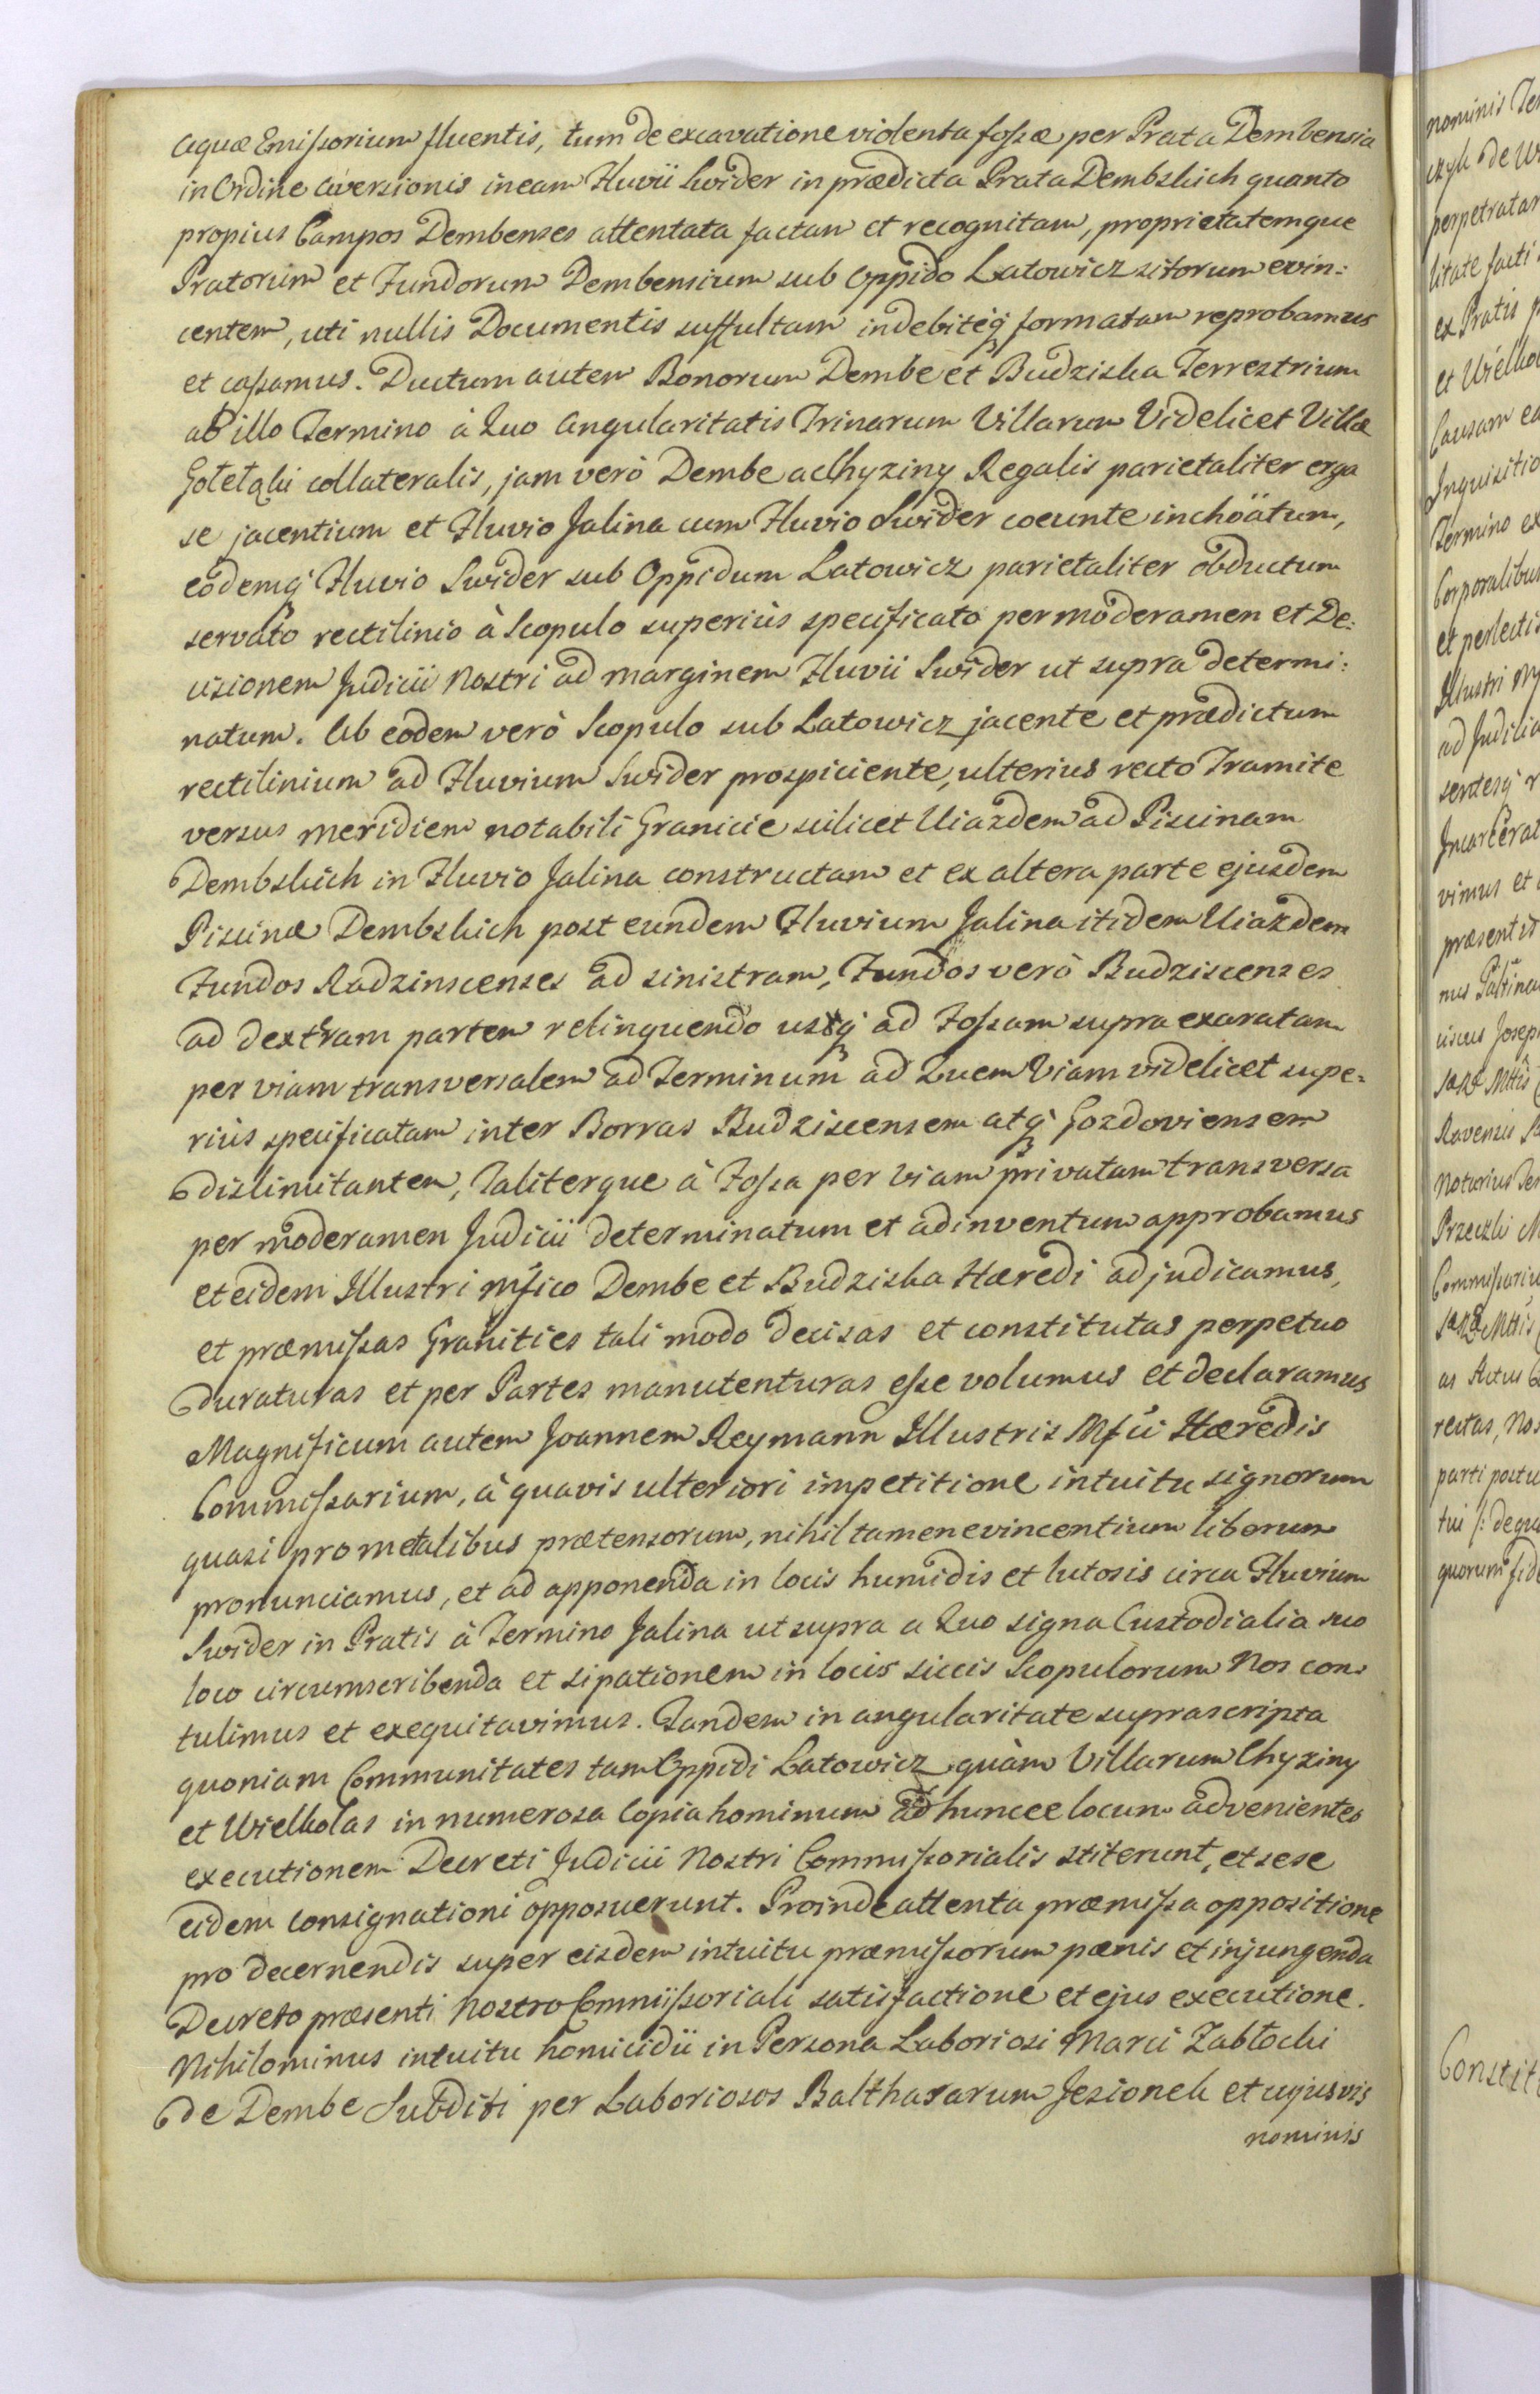 aquæ Emissorium fluentis, tum de excavatione violenta fossæ per Prata Dembensia
in Ordine aversionis in eam Fluvii Swider in prædicta Prata Dembskich quanto
propius Campos Dembenses attentata factam et recognitam, proprietatemque
Pratorum et Fundorum Dembensium sub Oppido Latowicz sitorum evin:
centem, uti nullis Documentis suffultam indebiteq formatam reprobamus
et cassamus. Ductum autem Bonorum Dembe et Budziska Terrestrium
ab illo Termino à Quo angularitatis Trinarum Villarum Videlicet Villæ
collateralis, jam verò Dembe ac Chyziny Regalis parietaliter erga
se jacentium et Fluvio Jalina cum Fluvio Swider coeunte inchöatum,
eodemq Fluvio Swider sub Oppidum Latowicz parietaliter obductum
servato rectilinio à Scopulo superiùs specificato per moderamen et De:
cisionem Judicii Nostri ad marginem Fluvii Swider ut supra determi:
natum. Ab eodem verò Scopulo sub Latowicz jacente et prædictum
rectilinium ad Fluvium Swider prospiciente, ulterius recto Tramite
versus meridiem notabili Granicie scilicet Uiazdem ad Piscinam
Dembskich in Fluvio Jalina constructam et ex altera parte ejusdem
Piscinæ Dembskich post eundem Fluvium Jalina itidem Uiazdem
Fundos Radzinscenses ad sinistram, Fundos verò Budziscenses
ad dextram partem relinquendo usq ad Fossam supra exaratam
per viam transversalem ad Terminum ad Quem Viam videlicet supe:
riùs specificatam inter Borras Budziscensem atq Gozdoviensem
dislimitantem, Taliterque à Fossa per Viam privatam transversa
per moderamen Judicii determinatum et adinventum approbamus
et eidem Illustri Mfico Dembe et Budziska Hæredi adjudicamus,
et præmissas Granities tali modo decisas et constitutas perpetuo
duraturas et per Partes manutenturas esse volumus et declaramus
Magnificum autem Joannem Reymann Illustris Mfci Hæredis
Commissarium, à quavis ulteriori impetitione intuitu signorum
quasi pro metalibus prætensorum, nihil tamen evincentium liberum
pronunciamus, et ad apponenda in locis humidis et lutosis circa Fluvium
Swider in Pratis à Termino Jalina ut supra a Quo signa Custodialia suo
loco circumscribenda et sipationem in locis siccis Scopulorum Nos con:
tulimus et exequitavimus. Tandem in angularitate suprascripta
quoniam Communitates tam Oppidi Latowicz quàm Villarum Chyziny
et Wielkolas in numerosa Copia hominum ad huncce locum advenientes
executionem Decreti Judicii Nostri Commissorialis stiterunt, et sese
eidem consignationi opposuerunt. Proinde attenta præmissa oppositione
pro decernendis super eisdem intuitu præmissorum pænis et injungenda
Decreto præsenti Nostro Commissoriali satisfactione et ejus executione.
Nihilominus intuitu homicidii in Persona Laboriosi Marci Zabłocki
de Dembe Subditi per Laboriosos Balthasarum Jesionek et cujusvis
nominis